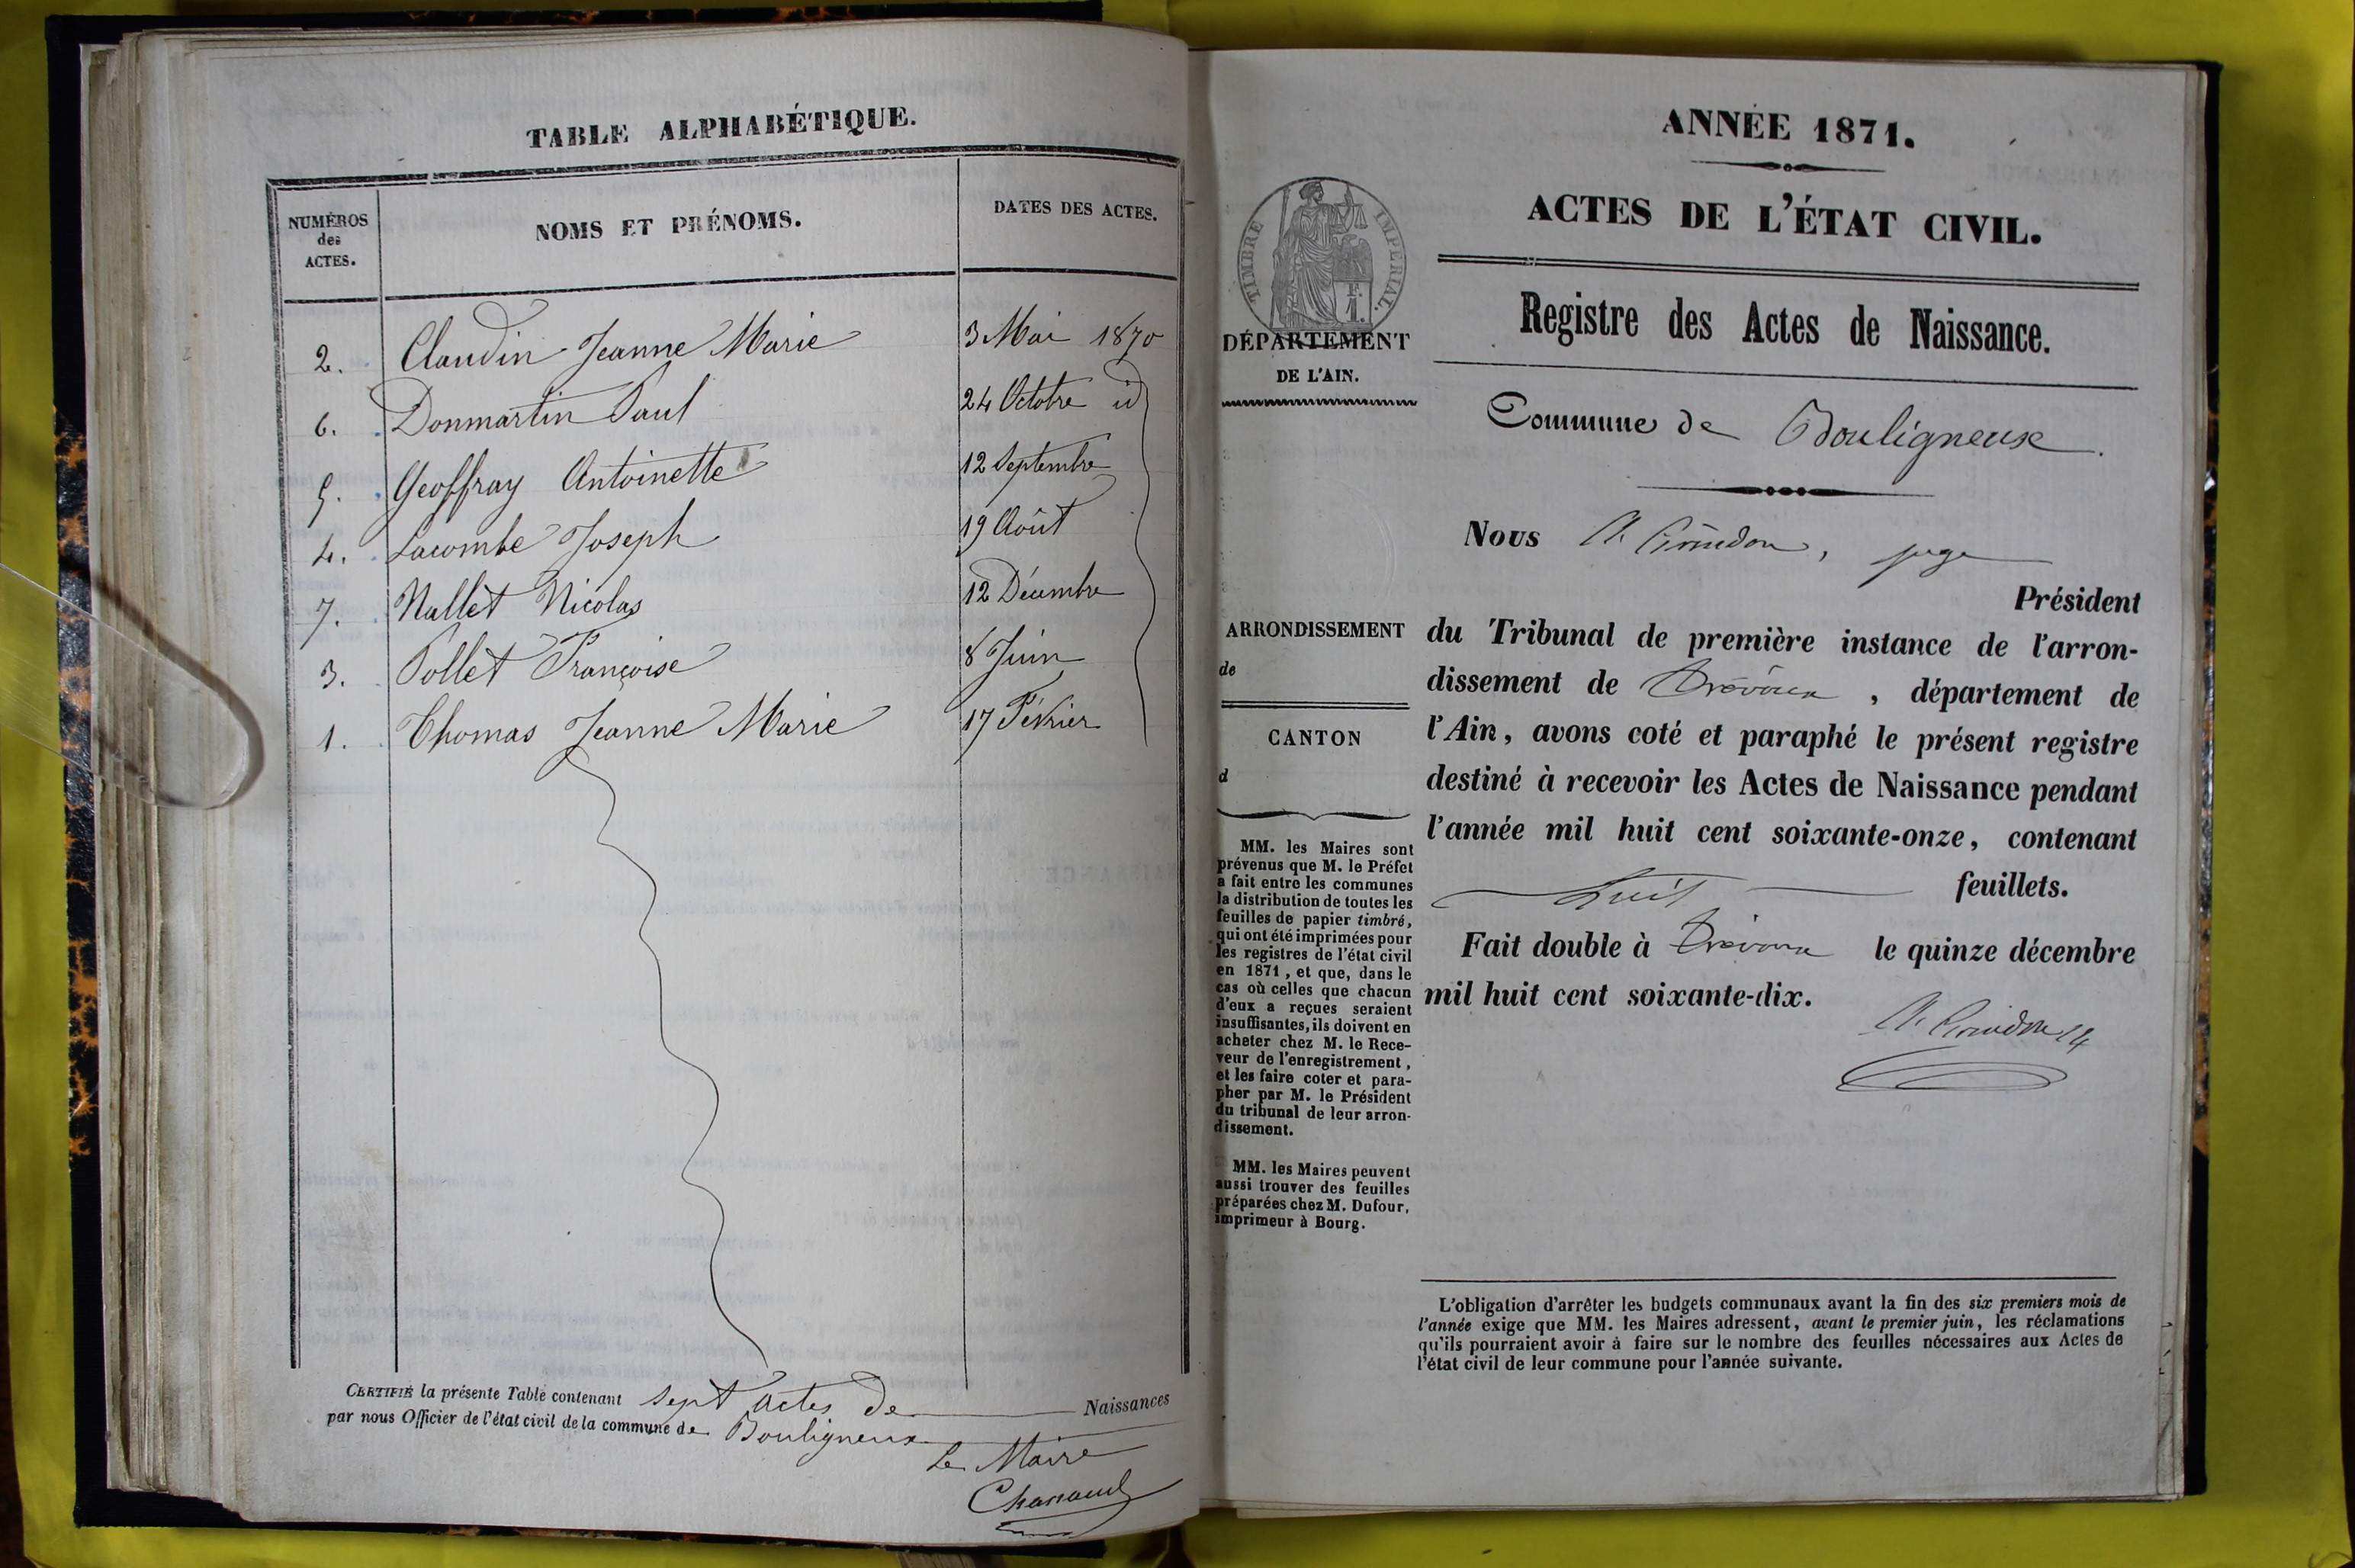 TABLE ALPHABÉTIQUE.
NUMÉROS des ACTES.
NOMS ET PRÉNOMS.
DATES DES ACTES.
2. Claudin Jeanne Marie 3 Mai 1870
6. Donmartin Paul 24 Octobre id
5. Geoffray Antoinette 12 Septembre
4. Lacombe Joseph 19 Août
7. Nallet Nicolas 12 Décembre
3. Pollet Françoise 8 Juin
1. Thomas Jeanne Marie 17 Février
CERTIFIÉ la présente Table contenant sept actes de Naissances
par nous Officier de l'état civil de la commune de Bouligneux
Le Maire
ANNÉE 1871.
ACTES DE L'ÉTAT CIVIL.
Registre des Actes de Naissance.
TIMBRE IMPERIAL.
F.
1.
DÉPARTEMENT
DE L'AIN.
Commune de Bouligneux.
Nous juge
Président
du Tribunal de première instance de l'arron-
dissement de Trévoux, département de
l'Ain, avons coté et paraphé le présent registre
destiné à recevoir les Actes de Naissance pendant
l'année mil huit cent soixante-onze, contenant
huit feuillets.
Fait double à Trévoux le quinze décembre
mil huit cent soixante-dix.
ARRONDISSEMENT
de
CANTON
d
MM. les Maires sont
prévenus que M. le Préfet
a fait entre les communes
la distribution de toutes les
feuilles de papier timbré,
qui ont été imprimées pour
les registres de l'état civil
en 1871, et que, dans le
cas où celles que chacun
d'eux a reçues seraient
insuffisantes, ils doivent en
acheter chez M. le Rece-
veur de l'enregistrement,
et les faire coter et para-
pher par M. le Président
du tribunal de leur arron-
dissement.
MM. les Maires peuvent
aussi trouver des feuilles
préparées chez M. Dufour,
imprimeur à Bourg.
L'obligation d'arrêter les budgets communaux avant la fin des six premiers mois de
l'année exige que MM. les Maires adressent, avant le premier juin, les réclamations
qu'ils pourraient avoir à faire sur le nombre des feuilles nécessaires aux Actes de
l'état civil de leur commune pour l'année suivante.